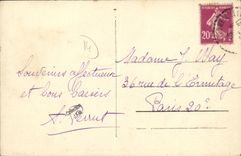 14
Souvenirs affectueux
et bons baisers
Madame J. Way
36 rue de l'Ermitage
Paris 20e
20c